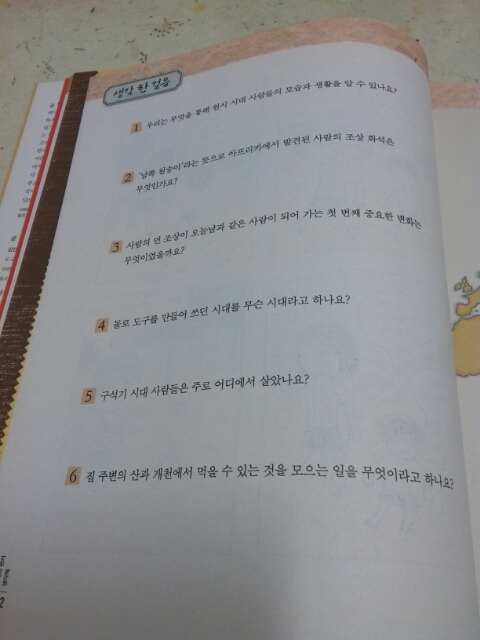 생각 한 걸음
1 우리는 무엇을 통해 원시 시대 사람들의 모습과 생활을 알 수 있나요?
2 '남쪽 원숭이'라는 뜻으로 아프리카에서 발견된 사람의 조상 화석은
무엇인가요?
3 사람의 먼 조상이 오늘날과 같은 사람이 되어 가는 첫 번째 중요한 변화는
무엇이었을까요?
4 돌로 도구를 만들어 쓰던 시대를 무슨 시대라고 하나요?
5 구석기 시대 사람들은 주로 어디에서 살았나요?
6 집 주변의 산과 개천에서 먹을 수 있는 것을 모으는 일을 무엇이라고 하나요?